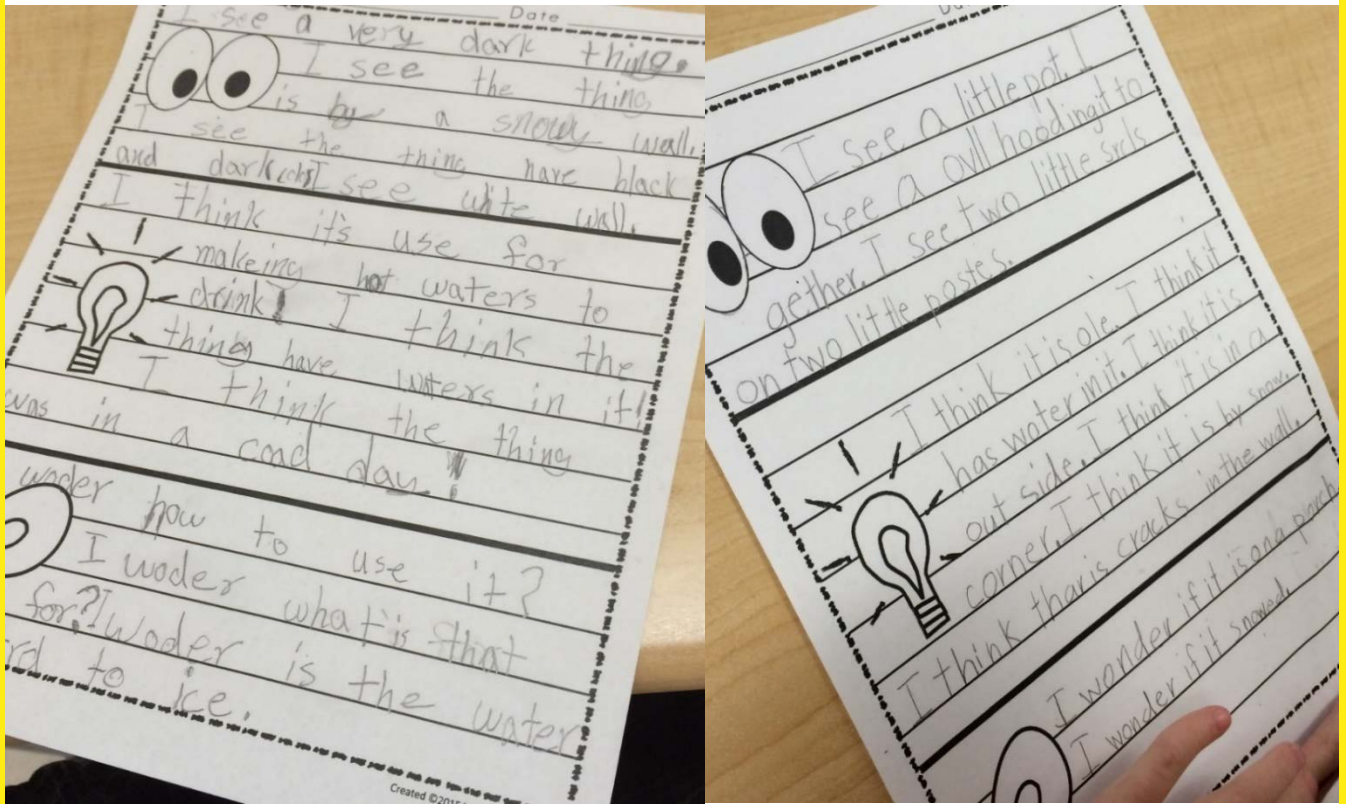 Date
I see a very dark thing.
I see the thing
is by a snowy wall.
I see the thing have black
and dark I see wite wall.
I think it's use for
makeing hot waters to
drink! I think the
thing have waters in it!
I think the thing
was in a coad day!
woder how to use it?
I woder what is that
for? I woder is the water
to ice.
Created ©2015
I see a little pot. I
see a ovll hooding it to
geither. I see two little srcls
on two little postes.
I think it is ole. I think it
has water in it. I think it is
out side. I think it is in a
corner. I think it is by snow.
I think thar is cracks in the wall.
I wonder if it is on a porch
I wonder if it snowed.